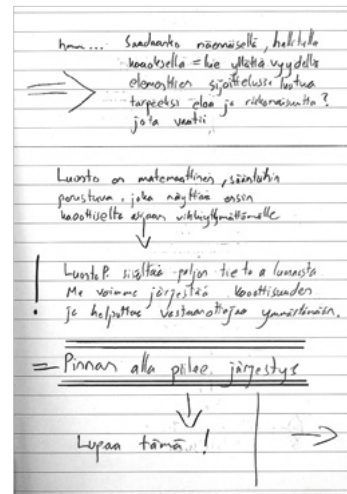 hmm... Saadaanko näennäisellä, hallitulla
kaaoksella = lie yllätyksyydellä
elementtien sijoittelussa luotua
tarpeeksi eloa ja rikkonaisuutta?
jota vaatii
Luonto on matemaattinen, sääntöihin
perustuva, joka näyttää ensin
kaoottiselta asiaan vihkiytymättömälle
! LuontoP. sisältää paljon tietoa luonnosta
Me voimme järjestää kaoottisuuden
ja helpottaa vastaanottajaa ymmärtämään.
= Pinnan alla piilee järjestys
Lupaa tämä!